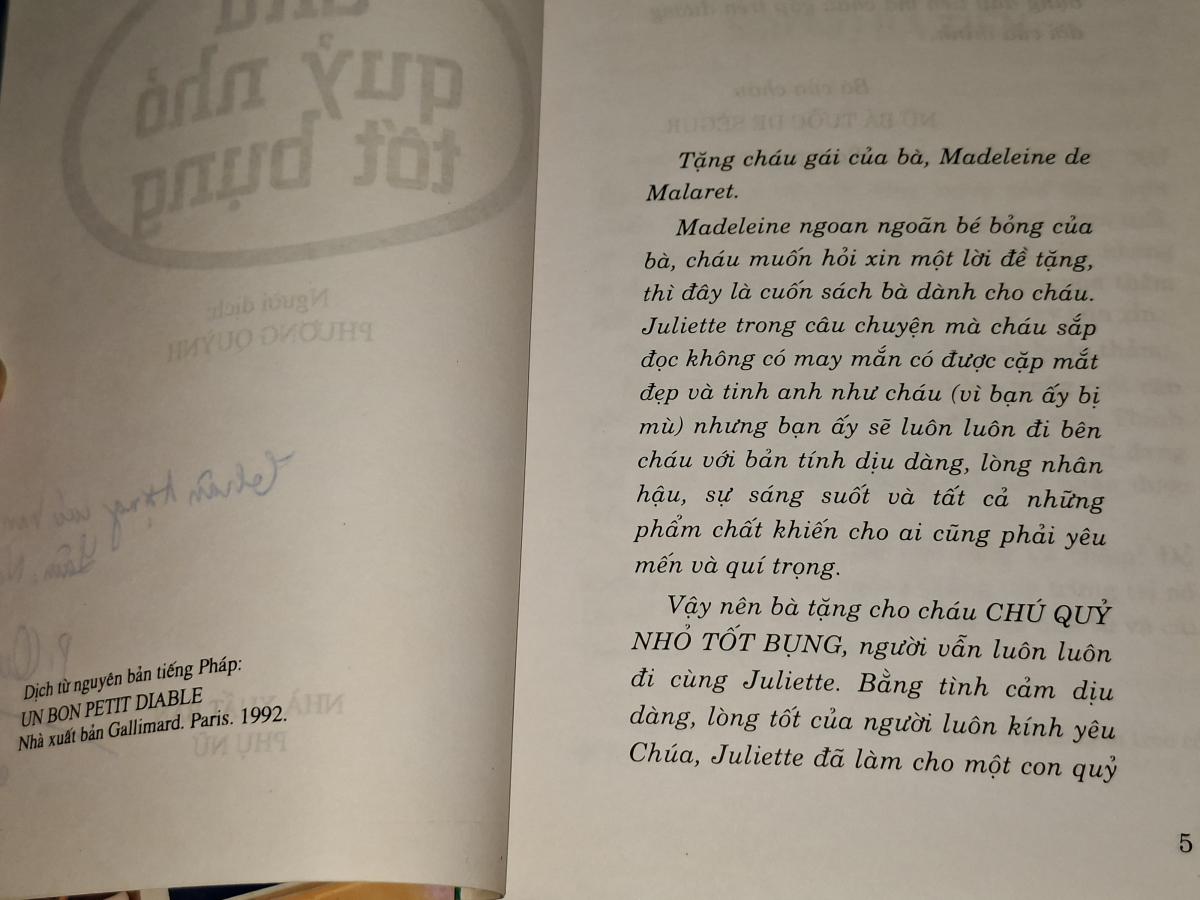 chú
quỷ nhỏ
tốt bụng
Người dịch:
PHƯƠNG QUỲNH
Thân tặng
Dịch từ nguyên bản tiếng Pháp:
UN BON PETIT DIABLE
Nhà xuất bản Gallimard. Paris. 1992.
NHÀ XUẤT
PHỤ NỮ
đời của mình.
Bà của cháu
NỮ BÁ TƯỚC DE SÉGUR
Tặng cháu gái của bà, Madeleine de
Malaret.
Madeleine ngoan ngoãn bé bỏng của
bà, cháu muốn hỏi xin một lời đề tặng,
thì đây là cuốn sách bà dành cho cháu.
Juliette trong câu chuyện mà cháu sắp
đọc không có may mắn có được cặp mắt
đẹp và tinh anh như cháu (vì bạn ấy bị
mù) nhưng bạn ấy sẽ luôn luôn đi bên
cháu với bản tính dịu dàng, lòng nhân
hậu, sự sáng suốt và tất cả những
phẩm chất khiến cho ai cũng phải yêu
mến và quí trọng.
Vậy nên bà tặng cho cháu CHÚ QUỶ
NHỎ TỐT BỤNG, người vẫn luôn luôn
đi cùng Juliette. Bằng tình cảm dịu
dàng, lòng tốt của người luôn kính yêu
Chúa, Juliette đã làm cho một con quỷ
5